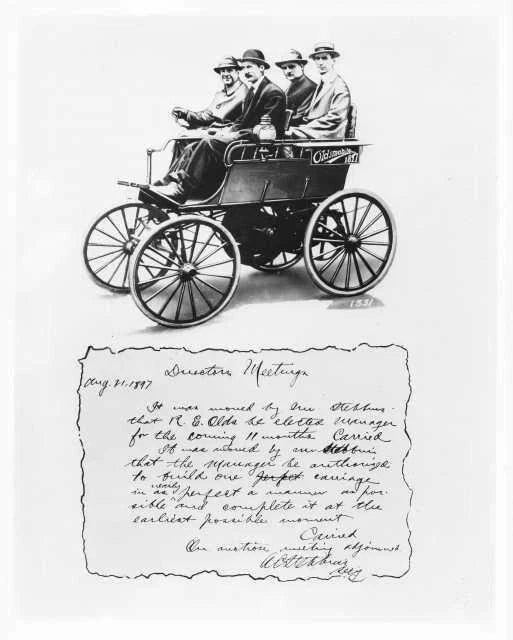 Oldsmobile
1897
1531
Directors Meeting
Aug. 21, 1897
It was moved by Mr Stebbins
that R. E. Olds be elected Manager
for the coming 11 months Carried
It was moved by Mr Stebbins
that the Manager be authorized
to build one perfect carriage
nearly
in as perfect a manner as pos-
sible and complete it at the
earliest possible moment
Carried
On motion meeting adjourned
A C Stebbins
Secy